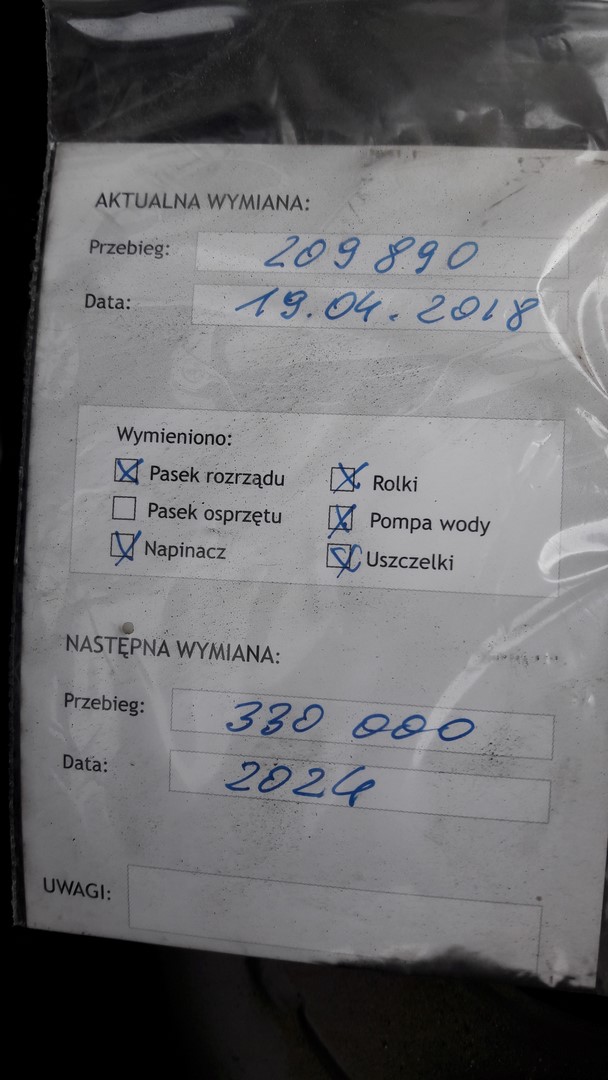 AKTUALNA WYMIANA:
Przebieg: 209 890
Data: 19.04.2018
Wymieniono:
Pasek rozrządu Rolki
Pasek osprzętu Pompa wody
Napinacz Uszczelki
NASTĘPNA WYMIANA:
Przebieg: 330 000
Data: 2024
UWAGI: